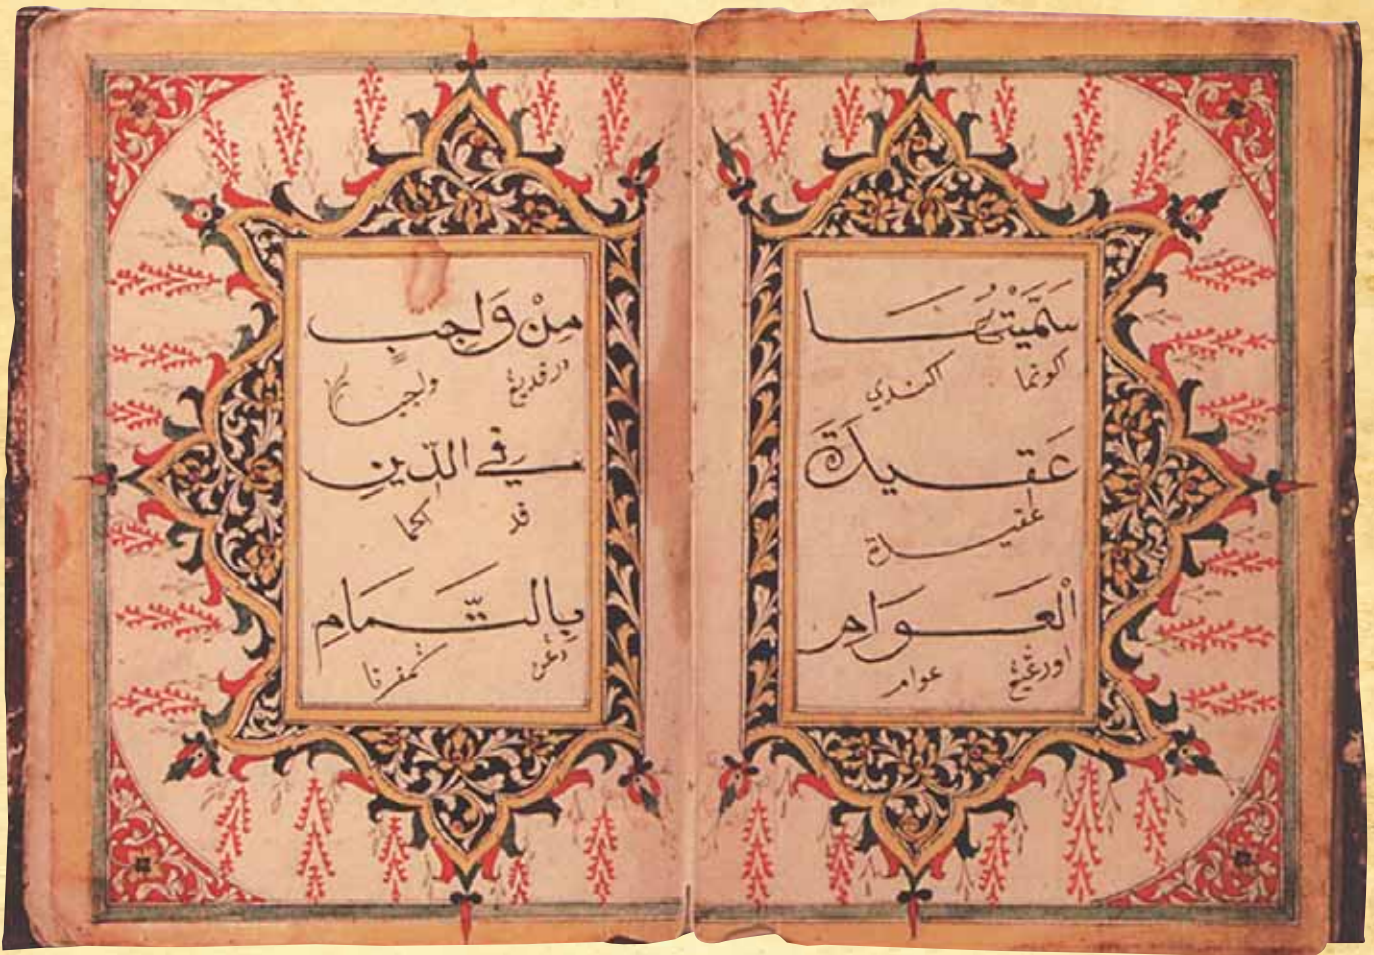 سَمَّيْتُهَا
اكونما اكندي
عَقِيدَةَ
عقيدة
الْعَوَامِ
اورڠيڠ عوام
مِنْ وَاجِبٍ
درفديڠ واجب
فِي الدِّينِ
فد اكما
بِالتَّمَامِ
دڠن